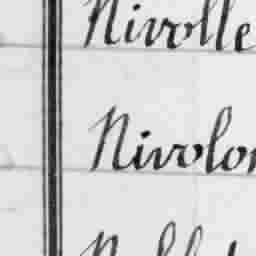 Nivolle
Nivolon